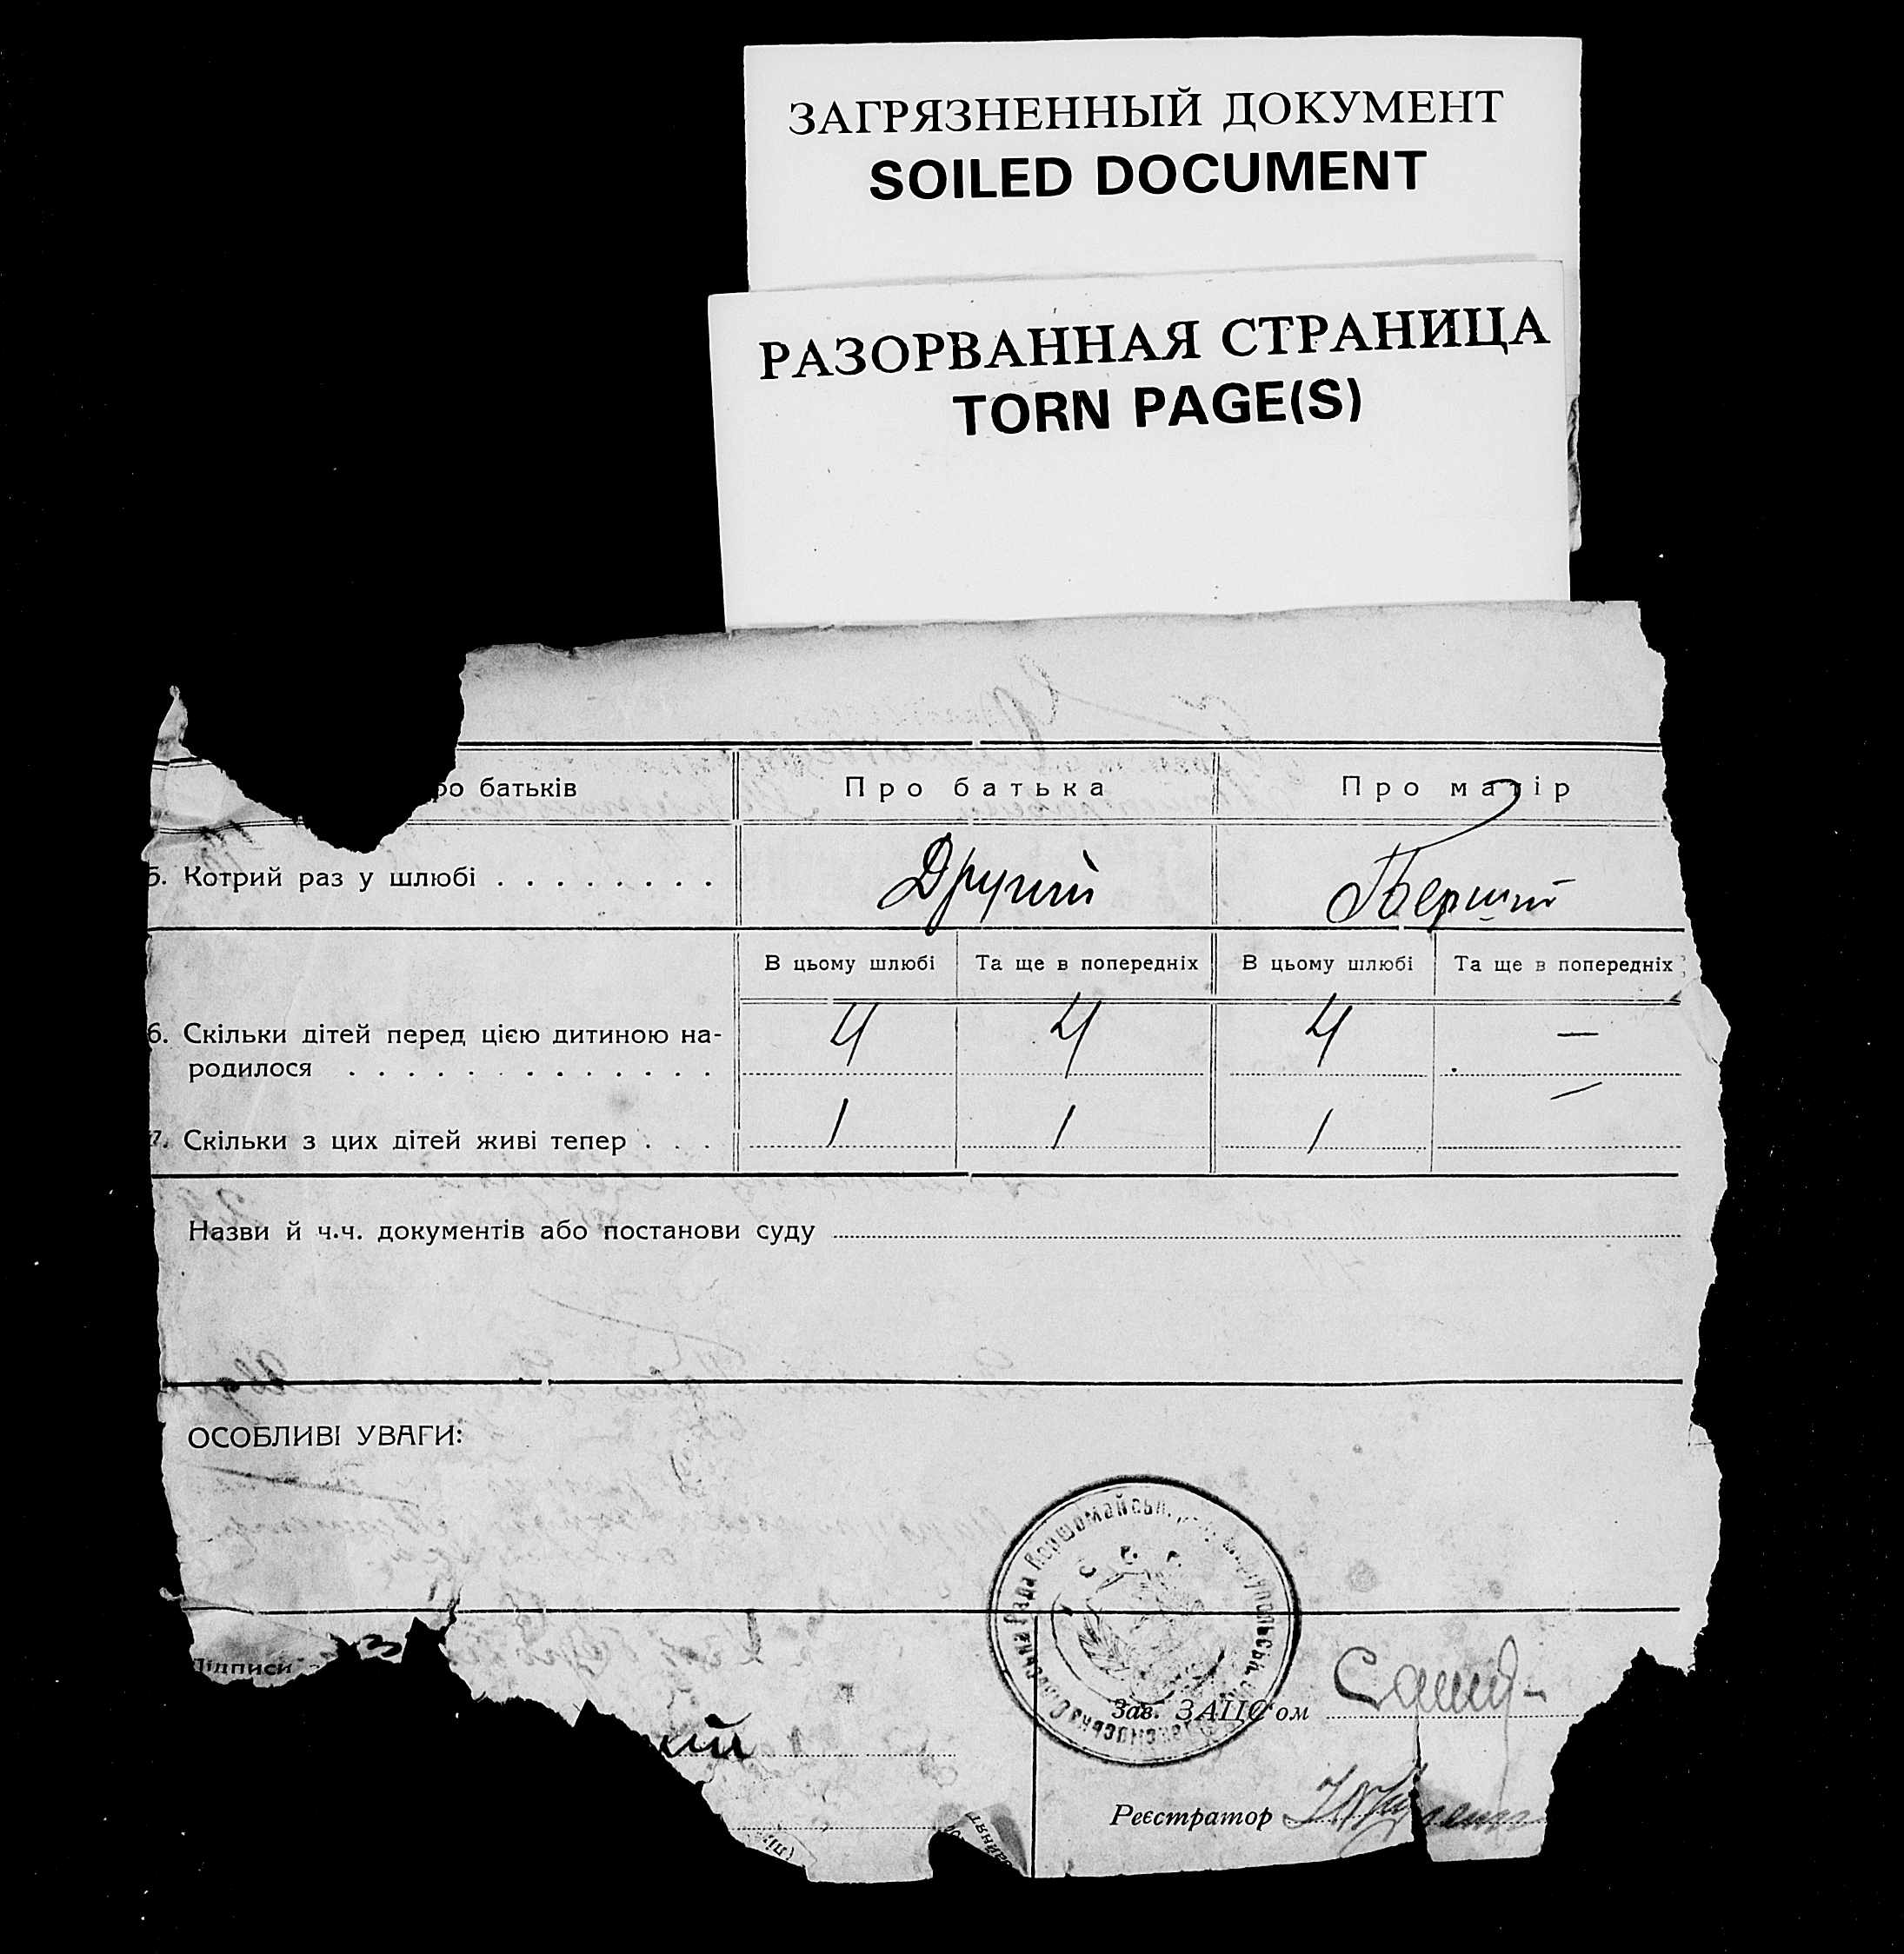 ЗАГРЯЗНЕННЫЙ ДОКУМЕНТ
SOILED DOCUMENT
РАЗОРВАННАЯ СТРАНИЦА
TORN PAGE(S)
ро батьків Про батька Про матір
5. Котрий раз у шлюбі . . . . . . . . Другий Перший
В цьому шлюбі Та ще в попередніх В цьому шлюбі Та ще в попередніх
6. Скільки дітей перед цією дитиною на-
родилося . . . . . . . . . . . . . . 4 4 4 —
7. Скільки з цих дітей живі тепер . . . 1 1 1 —
Назви й ч.ч. документів або постанови суду
ОСОБЛИВІ УВАГИ:
Підписи
ий
Зав. ЗАЦС'ом
Реєстратор